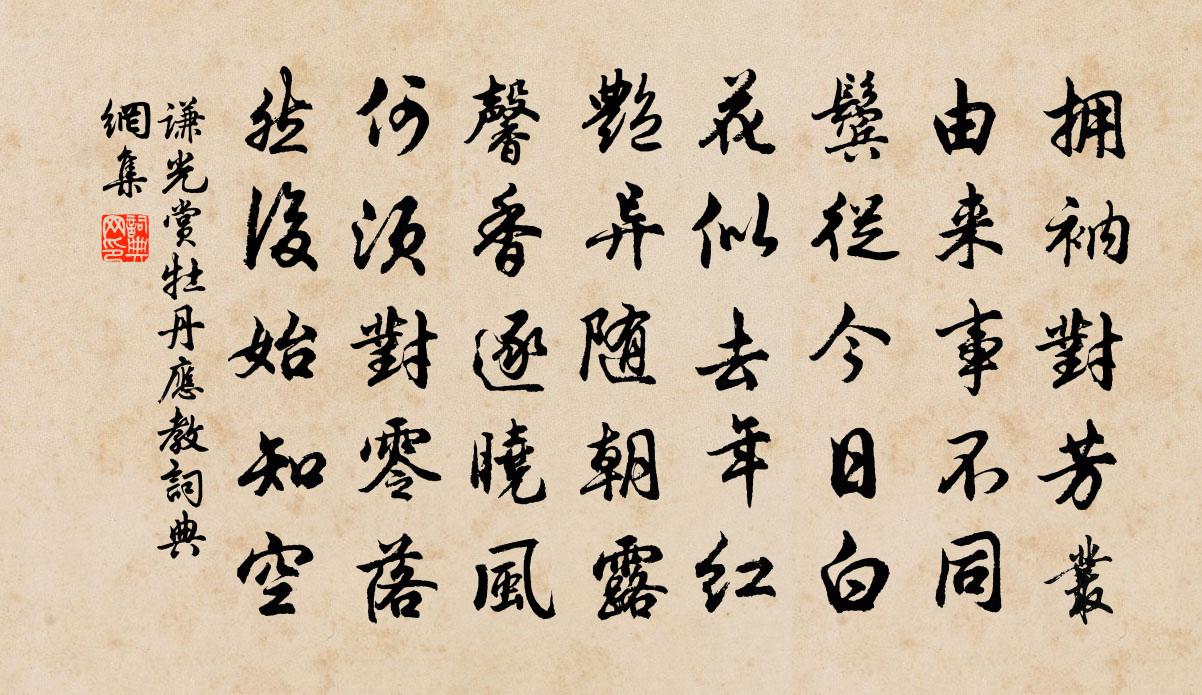 拥衲對芳叢
由来事不同
鬓從今日白
花似去年紅
艷异随朝露
馨香逐曉風
何須對零落
然後始知空
谦光赏牡丹應教詞典
網集
詞典
网印